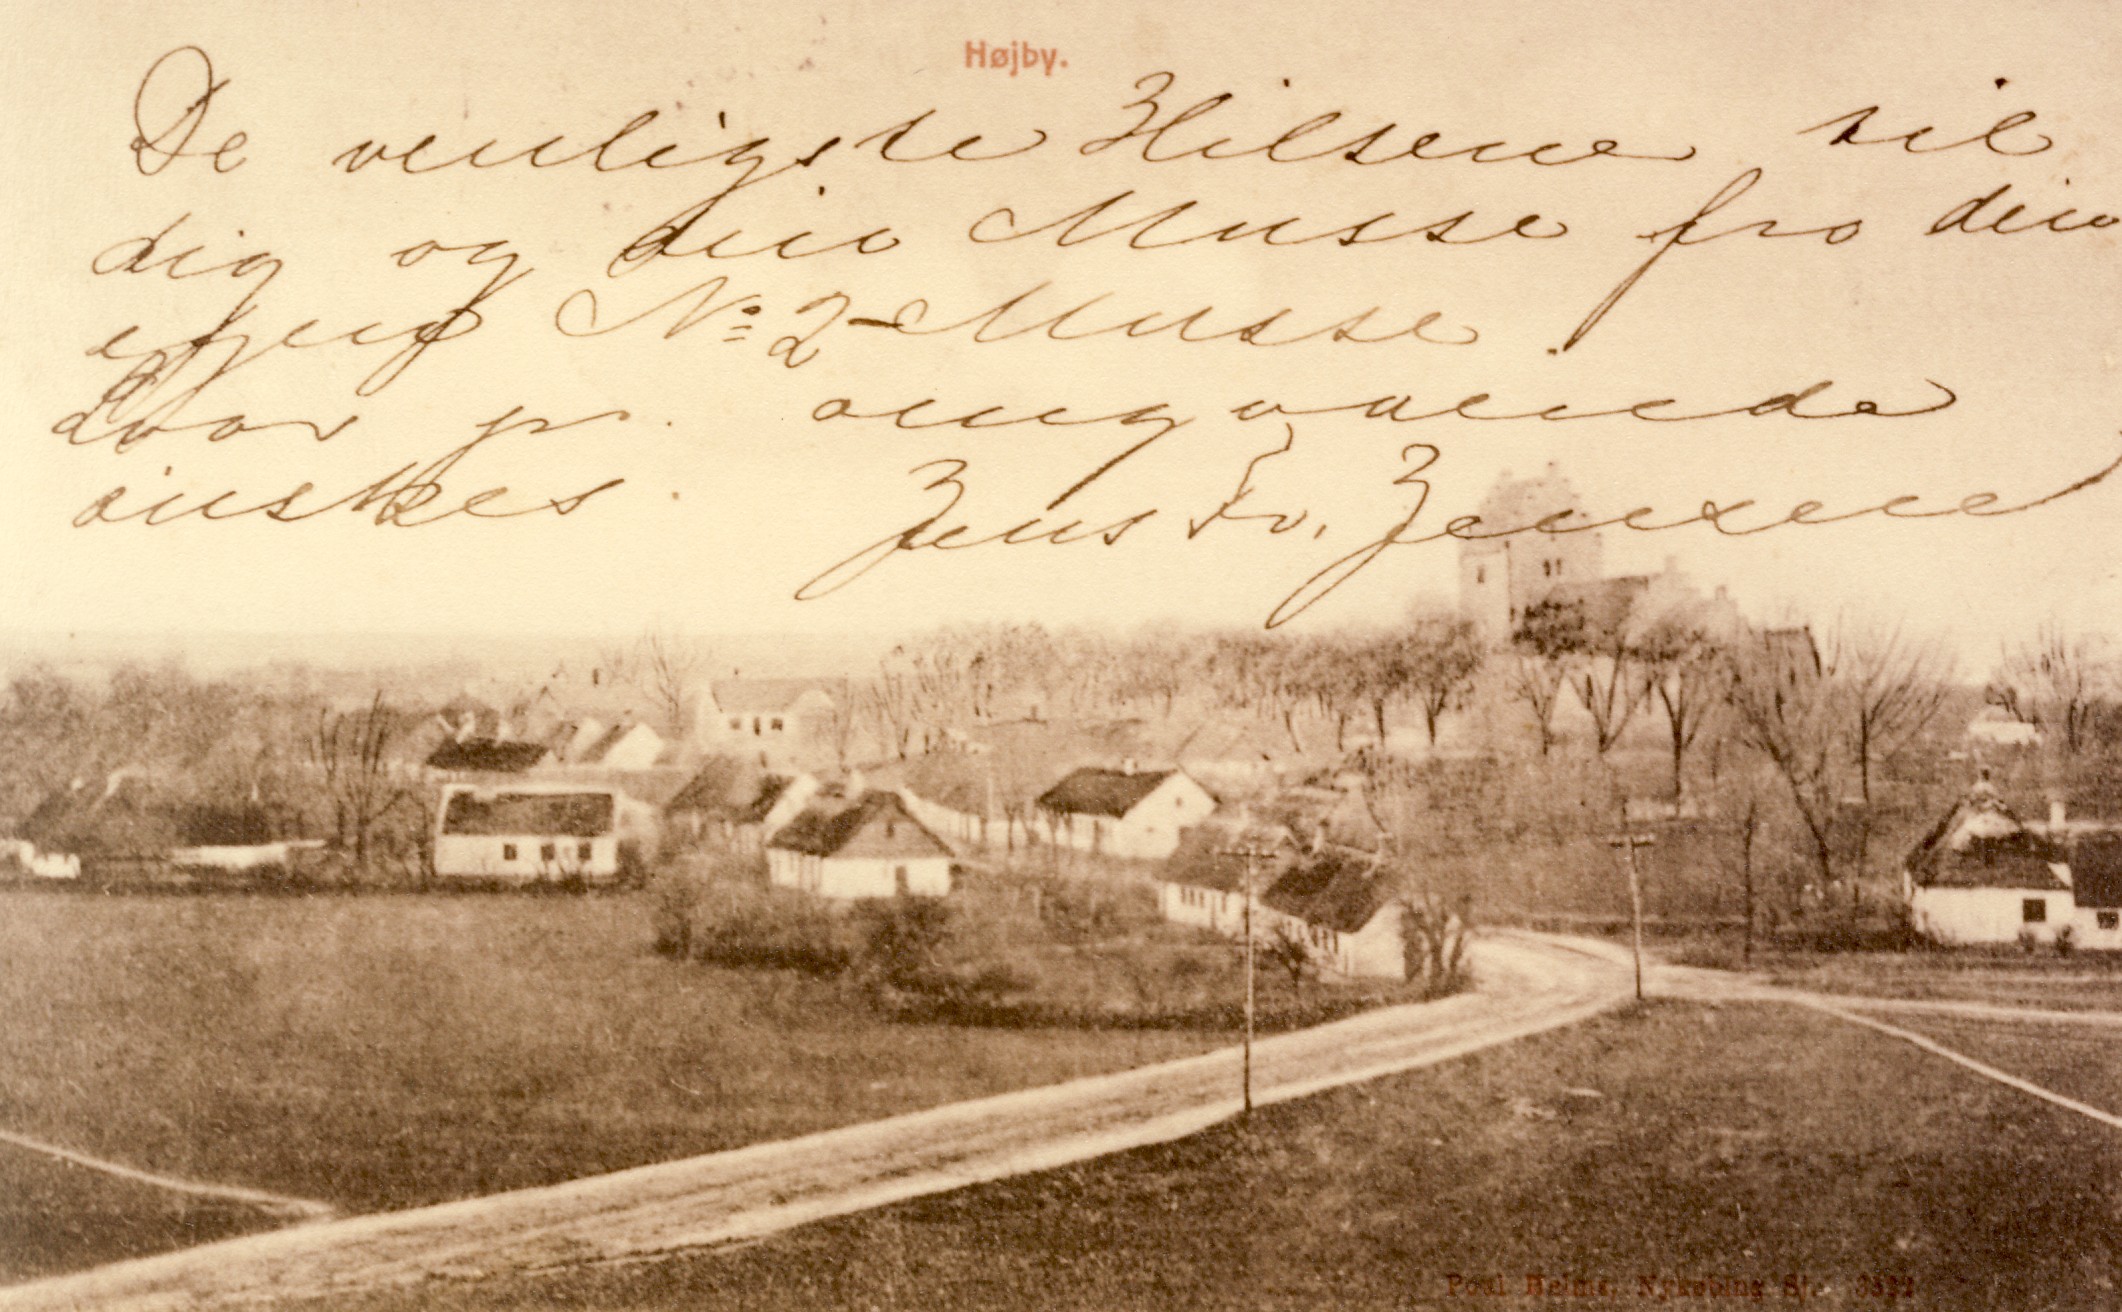 Højby.
De venligste Hilsener til
dig og din Musse fra din
egen No 2 Musse.
Svar pr. omgaaende
ønskes.
Jens Fr. Jensen
Poul Helms, Nykøbing Sj.